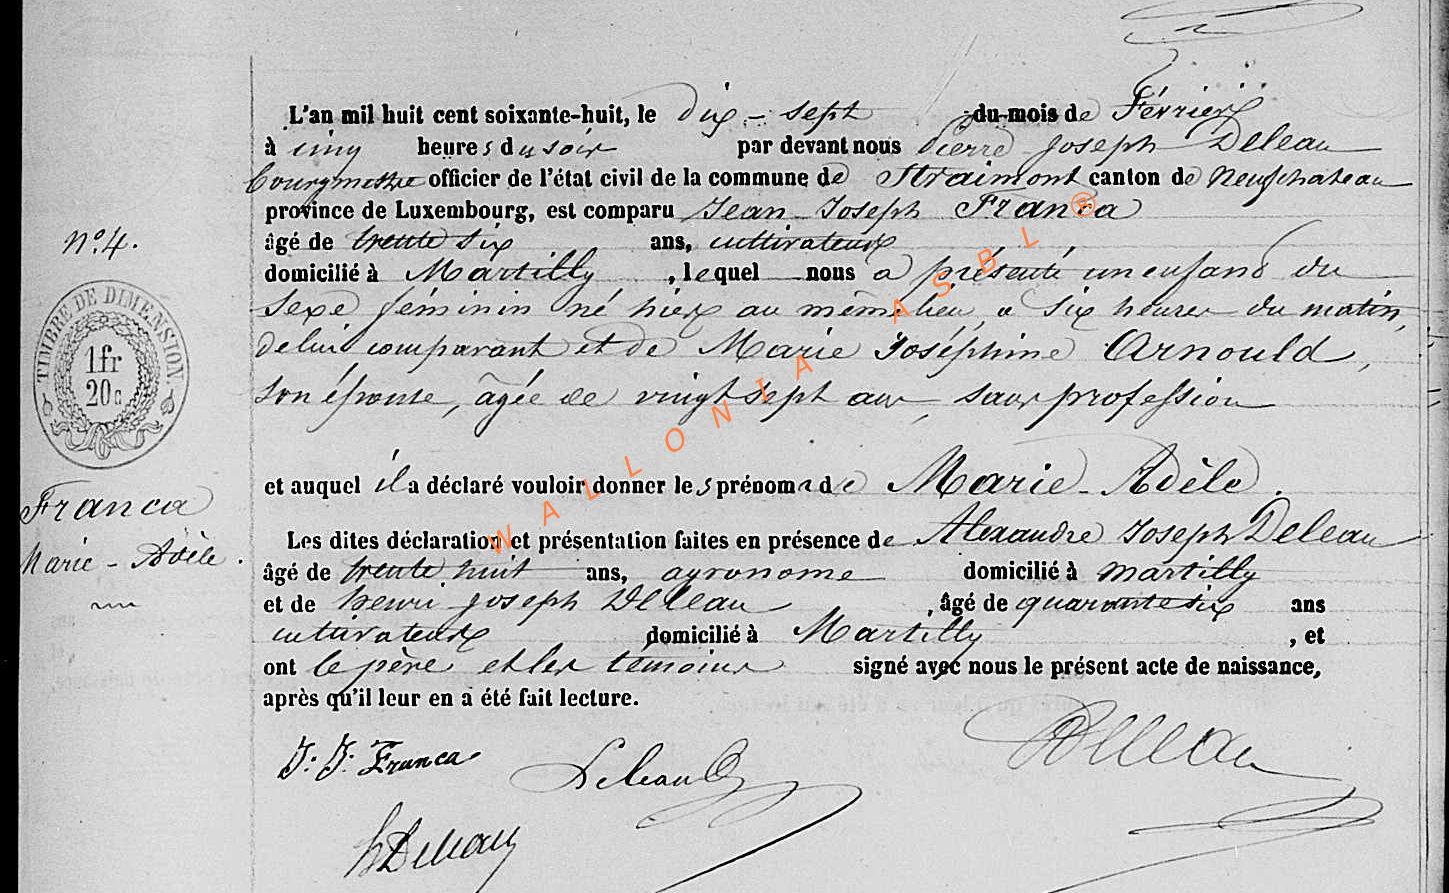 L'an mil huit cent soixante-huit, le dix-sept du mois de Février
à cinq heures du soir par devant nous Pierre Joseph Deleau
bourgmestre officier de l'état civil de la commune de Straimont canton de Neufchateau
province de Luxembourg, est comparu Jean Joseph Franca
âgé de trente six ans, cultivateur
n° 4.
domicilié à Martilly, lequel nous a présenté un enfant du
sexe féminin né hier au même lieu, a six heures du matin,
de lui comparant et de Marie Joséphine Arnould,
son épouse, âgée de vingt sept ans, sans profession
TIMBRE DE DIMENSION.
1fr
20c
et auquel il a déclaré vouloir donner les prénoms de Marie-Adèle.
Franca
Marie-Adèle.
Les dites déclaration et présentation faites en présence de Alexandre Joseph Deleau
âgé de trente huit ans, agronome domicilié à Martilly
et de henri joseph Deleau, âgé de quarante six ans
cultivateur domicilié à Martilly, et
ont le père et les témoins signé avec nous le présent acte de naissance,
après qu'il leur en a été fait lecture.
J. J. Franca
Deleau
Deleau
h Deleau
WALLONIA ASBL ®